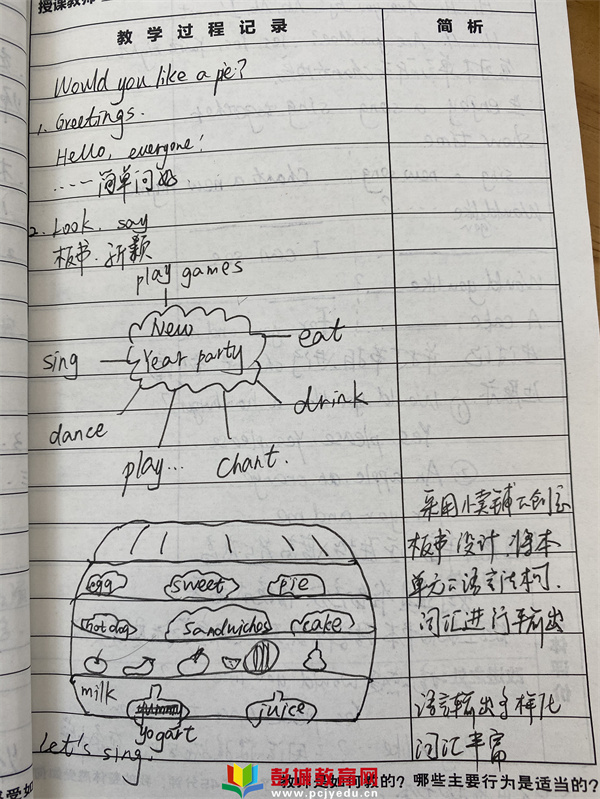 授课教师
教学过程记录
简析
Would you like a pie?
1. Greetings.
Hello, everyone!
……简单问好.
2. Look, say
板书.新颖
play games
New
Year party
eat
sing
drink
dance
play...
Chant.
采用小卖铺
板书设计,将本
单元
词汇进行
egg
sweet
pie
hotdog
Sandwiches
cake
milk
yogart
juice
语言输出多样化
词汇丰富
Let's sing.
彭城教育网
www.pcjyedu.cn
教师是如何教的?哪些主要行为是适当的?